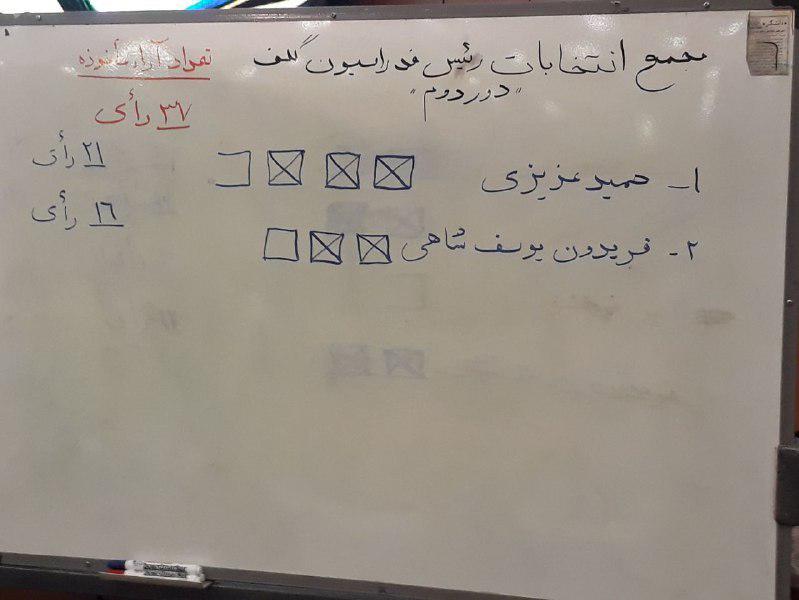 مجمع انتخابات رئیس فدراسیون گلف
"دور دوم"
تعداد آراء مأخوذه
۳۷ رأی
۱- حمید عزیزی
۲۱ رأی
۲- فریدون یوسف شاهی
۱۶ رأی